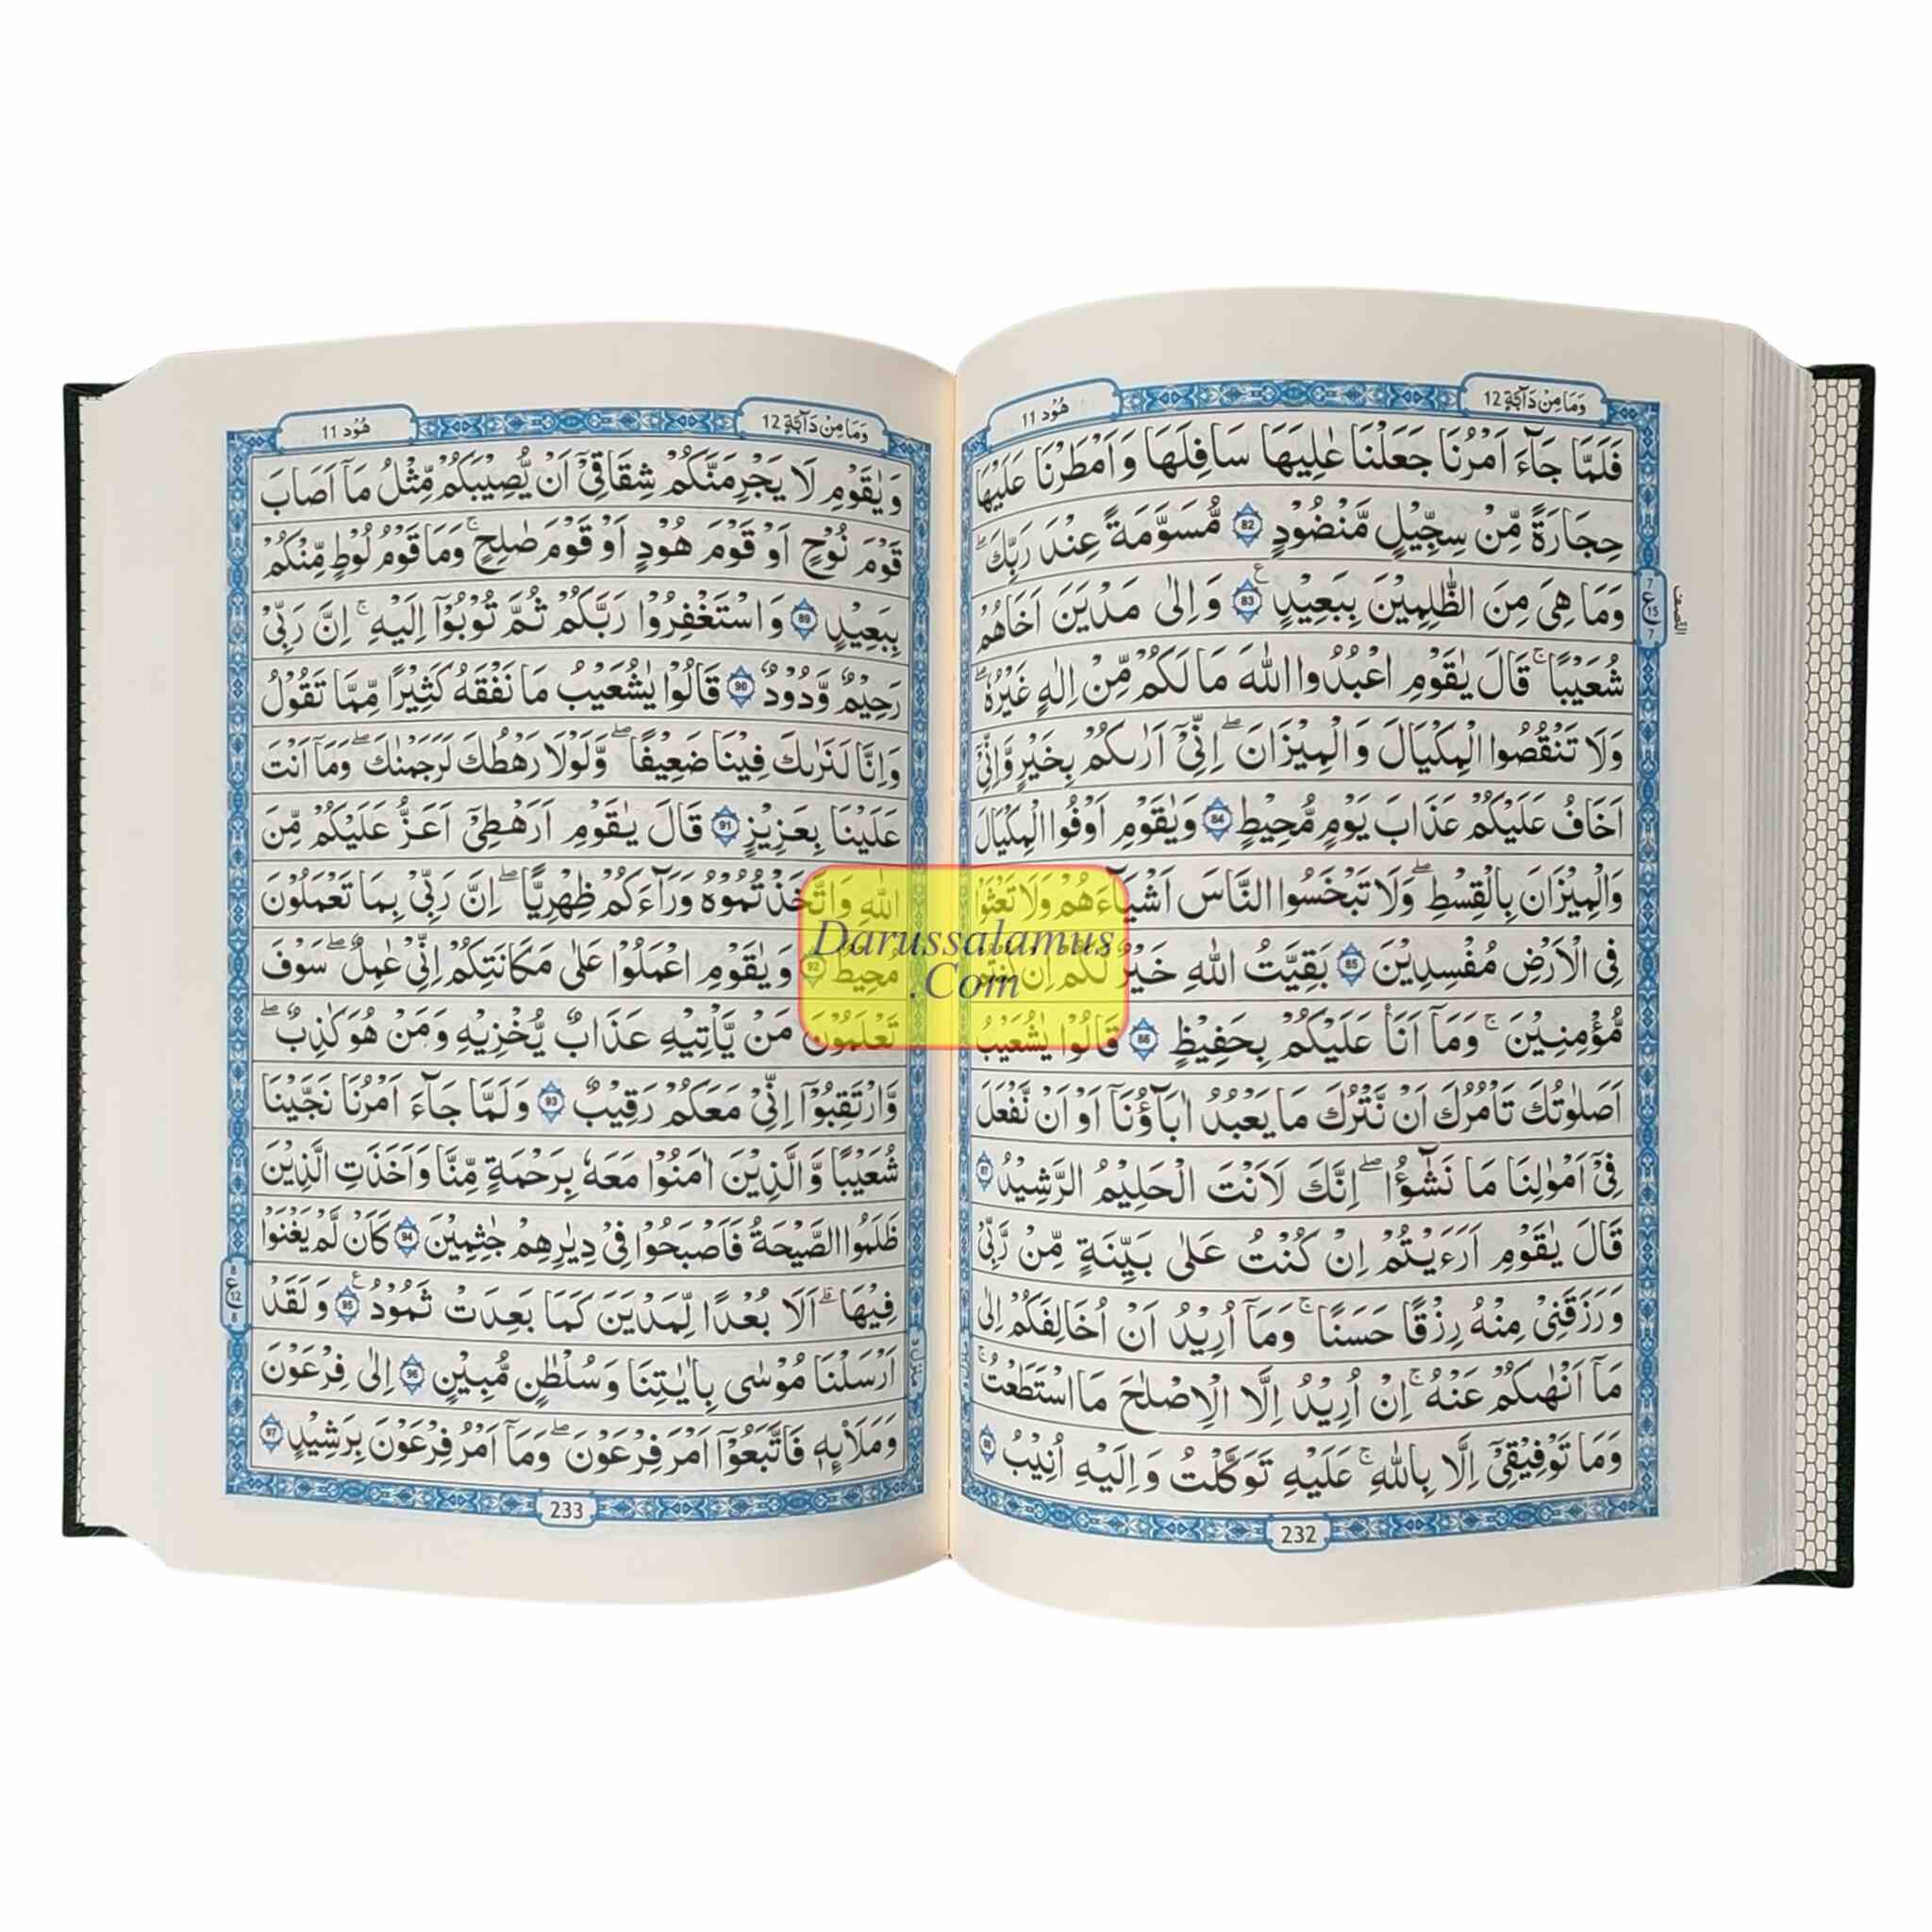 وَمَا مِنْ دَآبَّةٍ 12
هُوْد 11
فَلَمَّا جَآءَ اَمْرُنَا جَعَلْنَا عَالِيَهَا سَافِلَهَا وَاَمْطَرْنَا عَلَيْهَا
حِجَارَةً مِّنْ سِجِّيْلٍ مَّنْضُوْدٍ 82 مُّسَوَّمَةً عِنْدَ رَبِّكَ ؕ
وَمَا هِىَ مِنَ الظّٰلِمِيْنَ بِبَعِيْدٍ 83 وَاِلٰى مَدْيَنَ اَخَاهُمْ
شُعَيْبًا ۚ قَالَ يٰقَوْمِ اعْبُدُوا اللّٰهَ مَا لَكُمْ مِّنْ اِلٰهٍ غَيْرُهٗ ۖ
وَلَا تَنْقُصُوا الْمِكْيَالَ وَالْمِيْزَانَ ۖ اِنِّىْٓ اَرٰىكُمْ بِخَيْرٍ وَّاِنِّىْٓ
اَخَافُ عَلَيْكُمْ عَذَابَ يَوْمٍ مُّحِيْطٍ 84 وَيٰقَوْمِ اَوْفُوا الْمِكْيَالَ
وَالْمِيْزَانَ بِالْقِسْطِ ۖ وَلَا تَبْخَسُوا النَّاسَ اَشْيَآءَهُمْ وَلَا تَعْثَوْا
فِى الْاَرْضِ مُفْسِدِيْنَ 85 بَقِيَّتُ اللّٰهِ خَيْرٌ لَّكُمْ اِنْ كُنْتُمْ
مُّؤْمِنِيْنَ ۚ وَمَآ اَنَا۠ عَلَيْكُمْ بِحَفِيْظٍ 86 قَالُوْا يٰشُعَيْبُ
اَصَلٰوتُكَ تَاْمُرُكَ اَنْ نَّتْرُكَ مَا يَعْبُدُ اٰبَآؤُنَآ اَوْ اَنْ نَّفْعَلَ
فِىْٓ اَمْوٰلِنَا مَا نَشٰٓؤُا ۖ اِنَّكَ لَاَنْتَ الْحَلِيْمُ الرَّشِيْدُ 87
قَالَ يٰقَوْمِ اَرَءَيْتُمْ اِنْ كُنْتُ عَلٰى بَيِّنَةٍ مِّنْ رَّبِّىْ
وَرَزَقَنِىْ مِنْهُ رِزْقًا حَسَنًا ۚ وَمَآ اُرِيْدُ اَنْ اُخَالِفَكُمْ اِلٰى
مَآ اَنْهٰىكُمْ عَنْهُ ۚ اِنْ اُرِيْدُ اِلَّا الْاِصْلٰحَ مَا اسْتَطَعْتُ ۚ
وَمَا تَوْفِيْقِىْٓ اِلَّا بِاللّٰهِ ۚ عَلَيْهِ تَوَكَّلْتُ وَاِلَيْهِ اُنِيْبُ 88
232
وَمَا مِنْ دَآبَّةٍ 12
هُوْد 11
وَيٰقَوْمِ لَا يَجْرِمَنَّكُمْ شِقَاقِىْٓ اَنْ يُّصِيْبَكُمْ مِّثْلُ مَآ اَصَابَ
قَوْمَ نُوْحٍ اَوْ قَوْمَ هُوْدٍ اَوْ قَوْمَ صٰلِحٍ ۚ وَمَا قَوْمُ لُوْطٍ مِّنْكُمْ
بِبَعِيْدٍ 89 وَاسْتَغْفِرُوْا رَبَّكُمْ ثُمَّ تُوْبُوْٓا اِلَيْهِ ۚ اِنَّ رَبِّىْ
رَحِيْمٌ وَّدُوْدٌ 90 قَالُوْا يٰشُعَيْبُ مَا نَفْقَهُ كَثِيْرًا مِّمَّا تَقُوْلُ
وَاِنَّا لَنَرٰىكَ فِيْنَا ضَعِيْفًا ۖ وَّلَوْلَا رَهْطُكَ لَرَجَمْنٰكَ ۖ وَمَآ اَنْتَ
عَلَيْنَا بِعَزِيْزٍ 91 قَالَ يٰقَوْمِ اَرَهْطِىْٓ اَعَزُّ عَلَيْكُمْ مِّنَ
اللّٰهِ وَاتَّخَذْتُمُوْهُ وَرَآءَكُمْ ظِهْرِيًّا ۖ اِنَّ رَبِّىْ بِمَا تَعْمَلُوْنَ
مُحِيْطٌ 92 وَيٰقَوْمِ اعْمَلُوْا عَلٰى مَكَانَتِكُمْ اِنِّىْ عٰمِلٌ ۖ سَوْفَ
تَعْلَمُوْنَ مَنْ يَّاْتِيْهِ عَذَابٌ يُّخْزِيْهِ وَمَنْ هُوَ كَاذِبٌ ۖ
وَّارْتَقِبُوْٓا اِنِّىْ مَعَكُمْ رَقِيْبٌ 93 وَلَمَّا جَآءَ اَمْرُنَا نَجَّيْنَا
شُعَيْبًا وَّالَّذِيْنَ اٰمَنُوْا مَعَهٗ بِرَحْمَةٍ مِّنَّا وَاَخَذَتِ الَّذِيْنَ
ظَلَمُوا الصَّيْحَةُ فَاَصْبَحُوْا فِىْ دِيٰرِهِمْ جٰثِمِيْنَ 94 كَاَنْ لَّمْ يَغْنَوْا
فِيْهَا ۗ اَلَا بُعْدًا لِّمَدْيَنَ كَمَا بَعِدَتْ ثَمُوْدُ 95 وَلَقَدْ
اَرْسَلْنَا مُوْسٰى بِاٰيٰتِنَا وَسُلْطٰنٍ مُّبِيْنٍ 96 اِلٰى فِرْعَوْنَ
وَمَلَا۟ئِهٖ فَاتَّبَعُوْٓا اَمْرَ فِرْعَوْنَ ۖ وَمَآ اَمْرُ فِرْعَوْنَ بِرَشِيْدٍ 97
233
Darussalamus
.Com